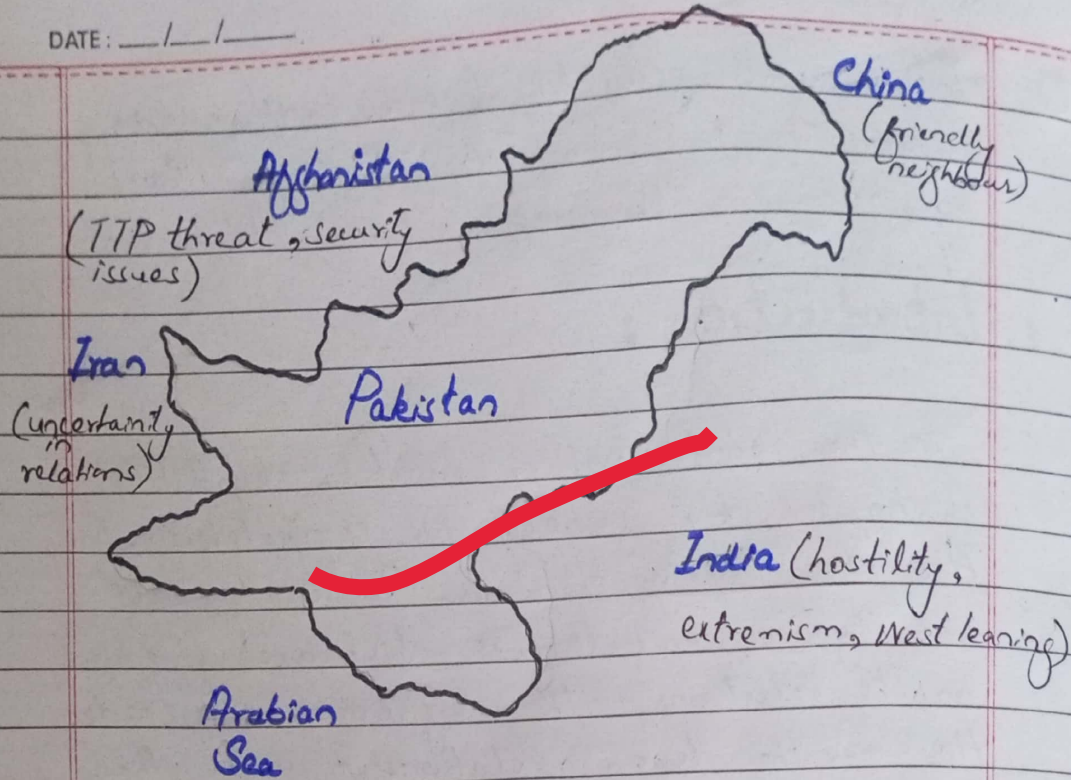 DATE: __/__/____
China
(friendly
neighbour)
Afghanistan
(TTP threat, security
issues)
Iran
(uncertainity
in
relations)
Pakistan
India (hostility,
extremism, West leaning)
Arabian
Sea